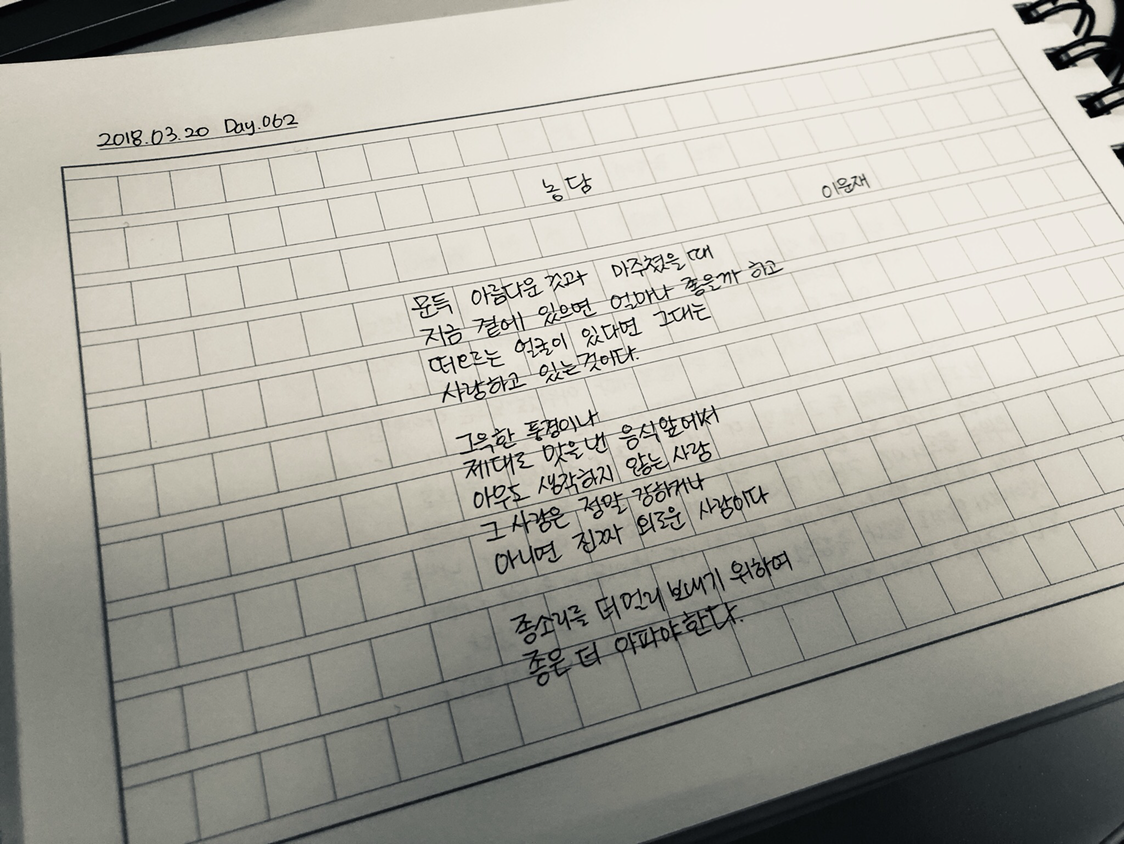 2018.03.20 Day.062
농담
이운재
문득 아름다운 것과 마주쳤을 때
지금 곁에 있으면 얼마나 좋을까 하고
떠오르는 얼굴이 있다면 그대는
사랑하고 있는것이다.
그윽한 풍경이나
제대로 맛을 낸 음식앞에서
아무도 생각하지 않는 사람
그 사람은 정말 강하거나
아니면 진짜 외로운 사람이다
종소리를 더 멀리 보내기 위하여
종은 더 아파야한다.